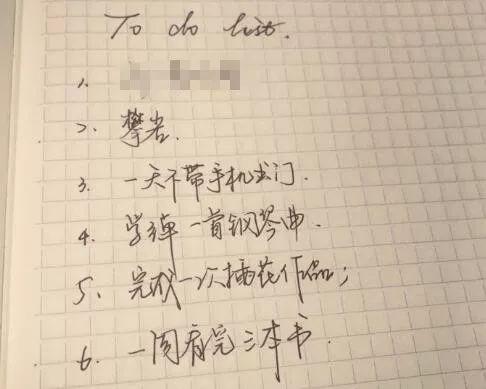 To do list.
1、
2、攀岩.
3. 一天不带手机出门.
4. 学弹一首钢琴曲.
5、完成一次插花作品;
6. 一周看完三本书.